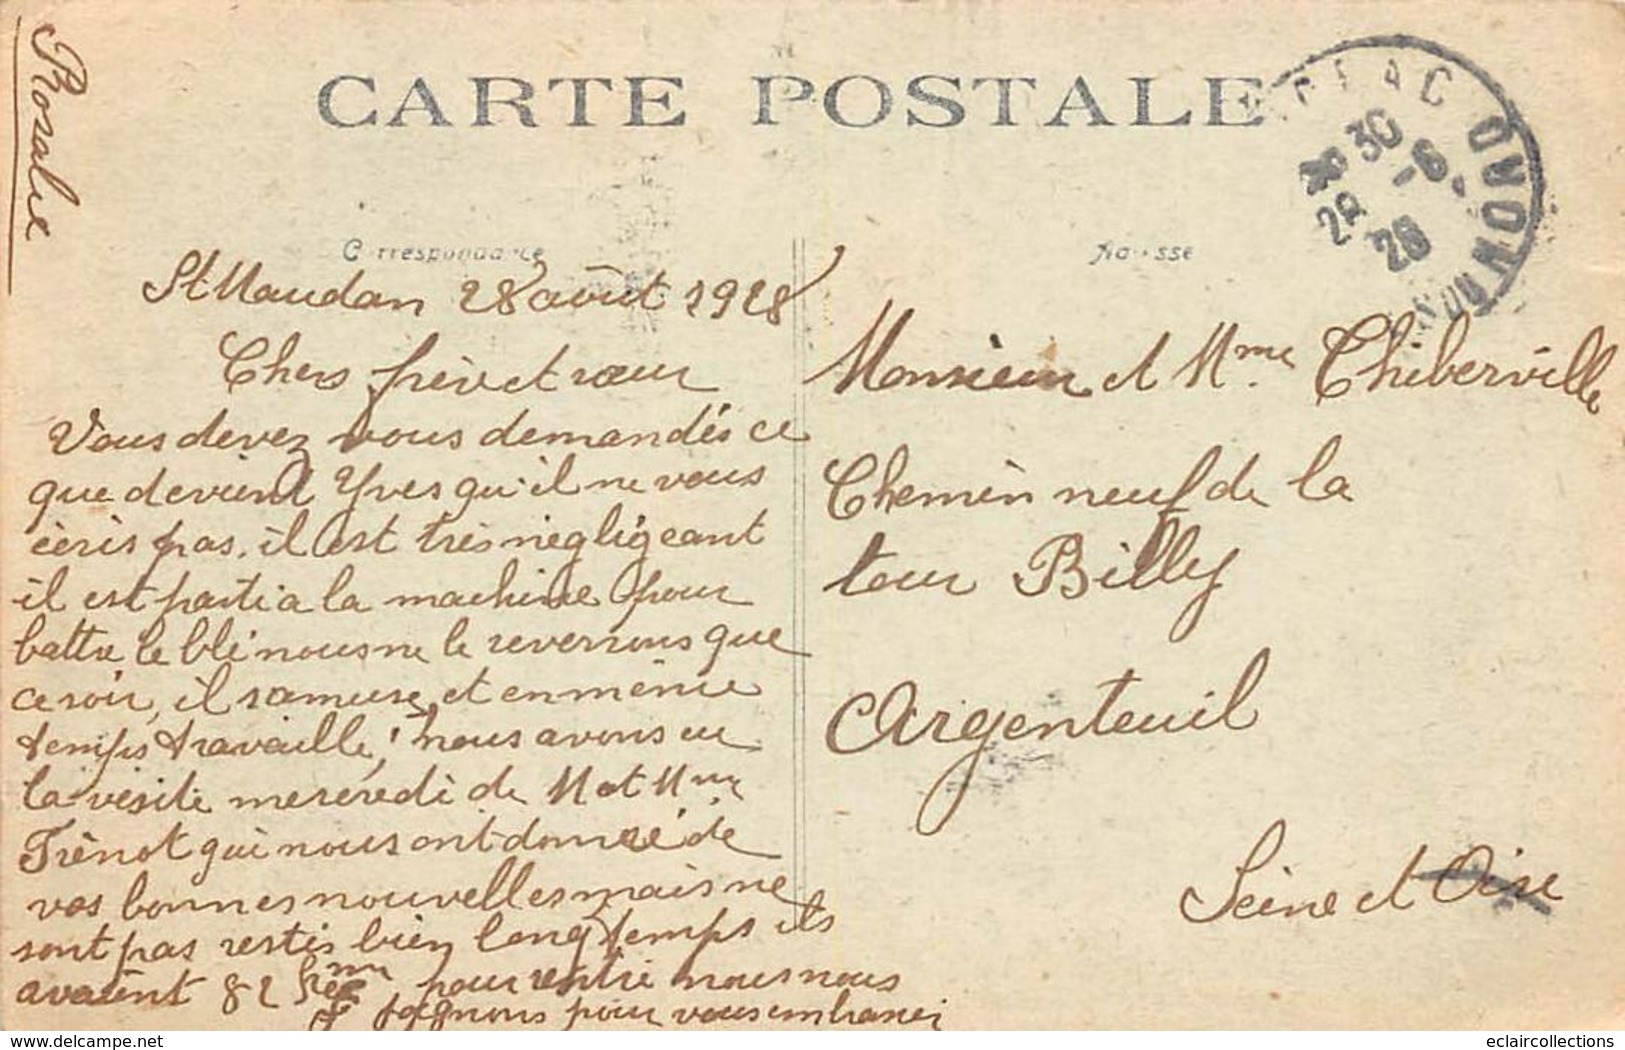 Rosalie
CARTE POSTALE
Correspondance
Adresse
30
28 -8
28
St Maudan 28 août 1928
Chers frère et sœur
Vous devez vous demandés ce
que devient Yves qu'il ne vous
écris pas, il est très négligeant
il est parti a la machine pour
battre le blé nous ne le reverrons que
ce soir, il s'amuse et en même
temps travaille, nous avons eu
la visite mercredi de M et Mme
Frénot qui nous ont donné de
vos bonnes nouvelles mais ne
sont pas restés bien longtemps ils
avaient 82 pour rentré nous nous
joignons pour vous embrasser
Monsieur et Mme Thiberville
Chemin neuf de la
tour Billy
Argenteuil
Seine et Oise
www.delcampe.net
eclaircollections